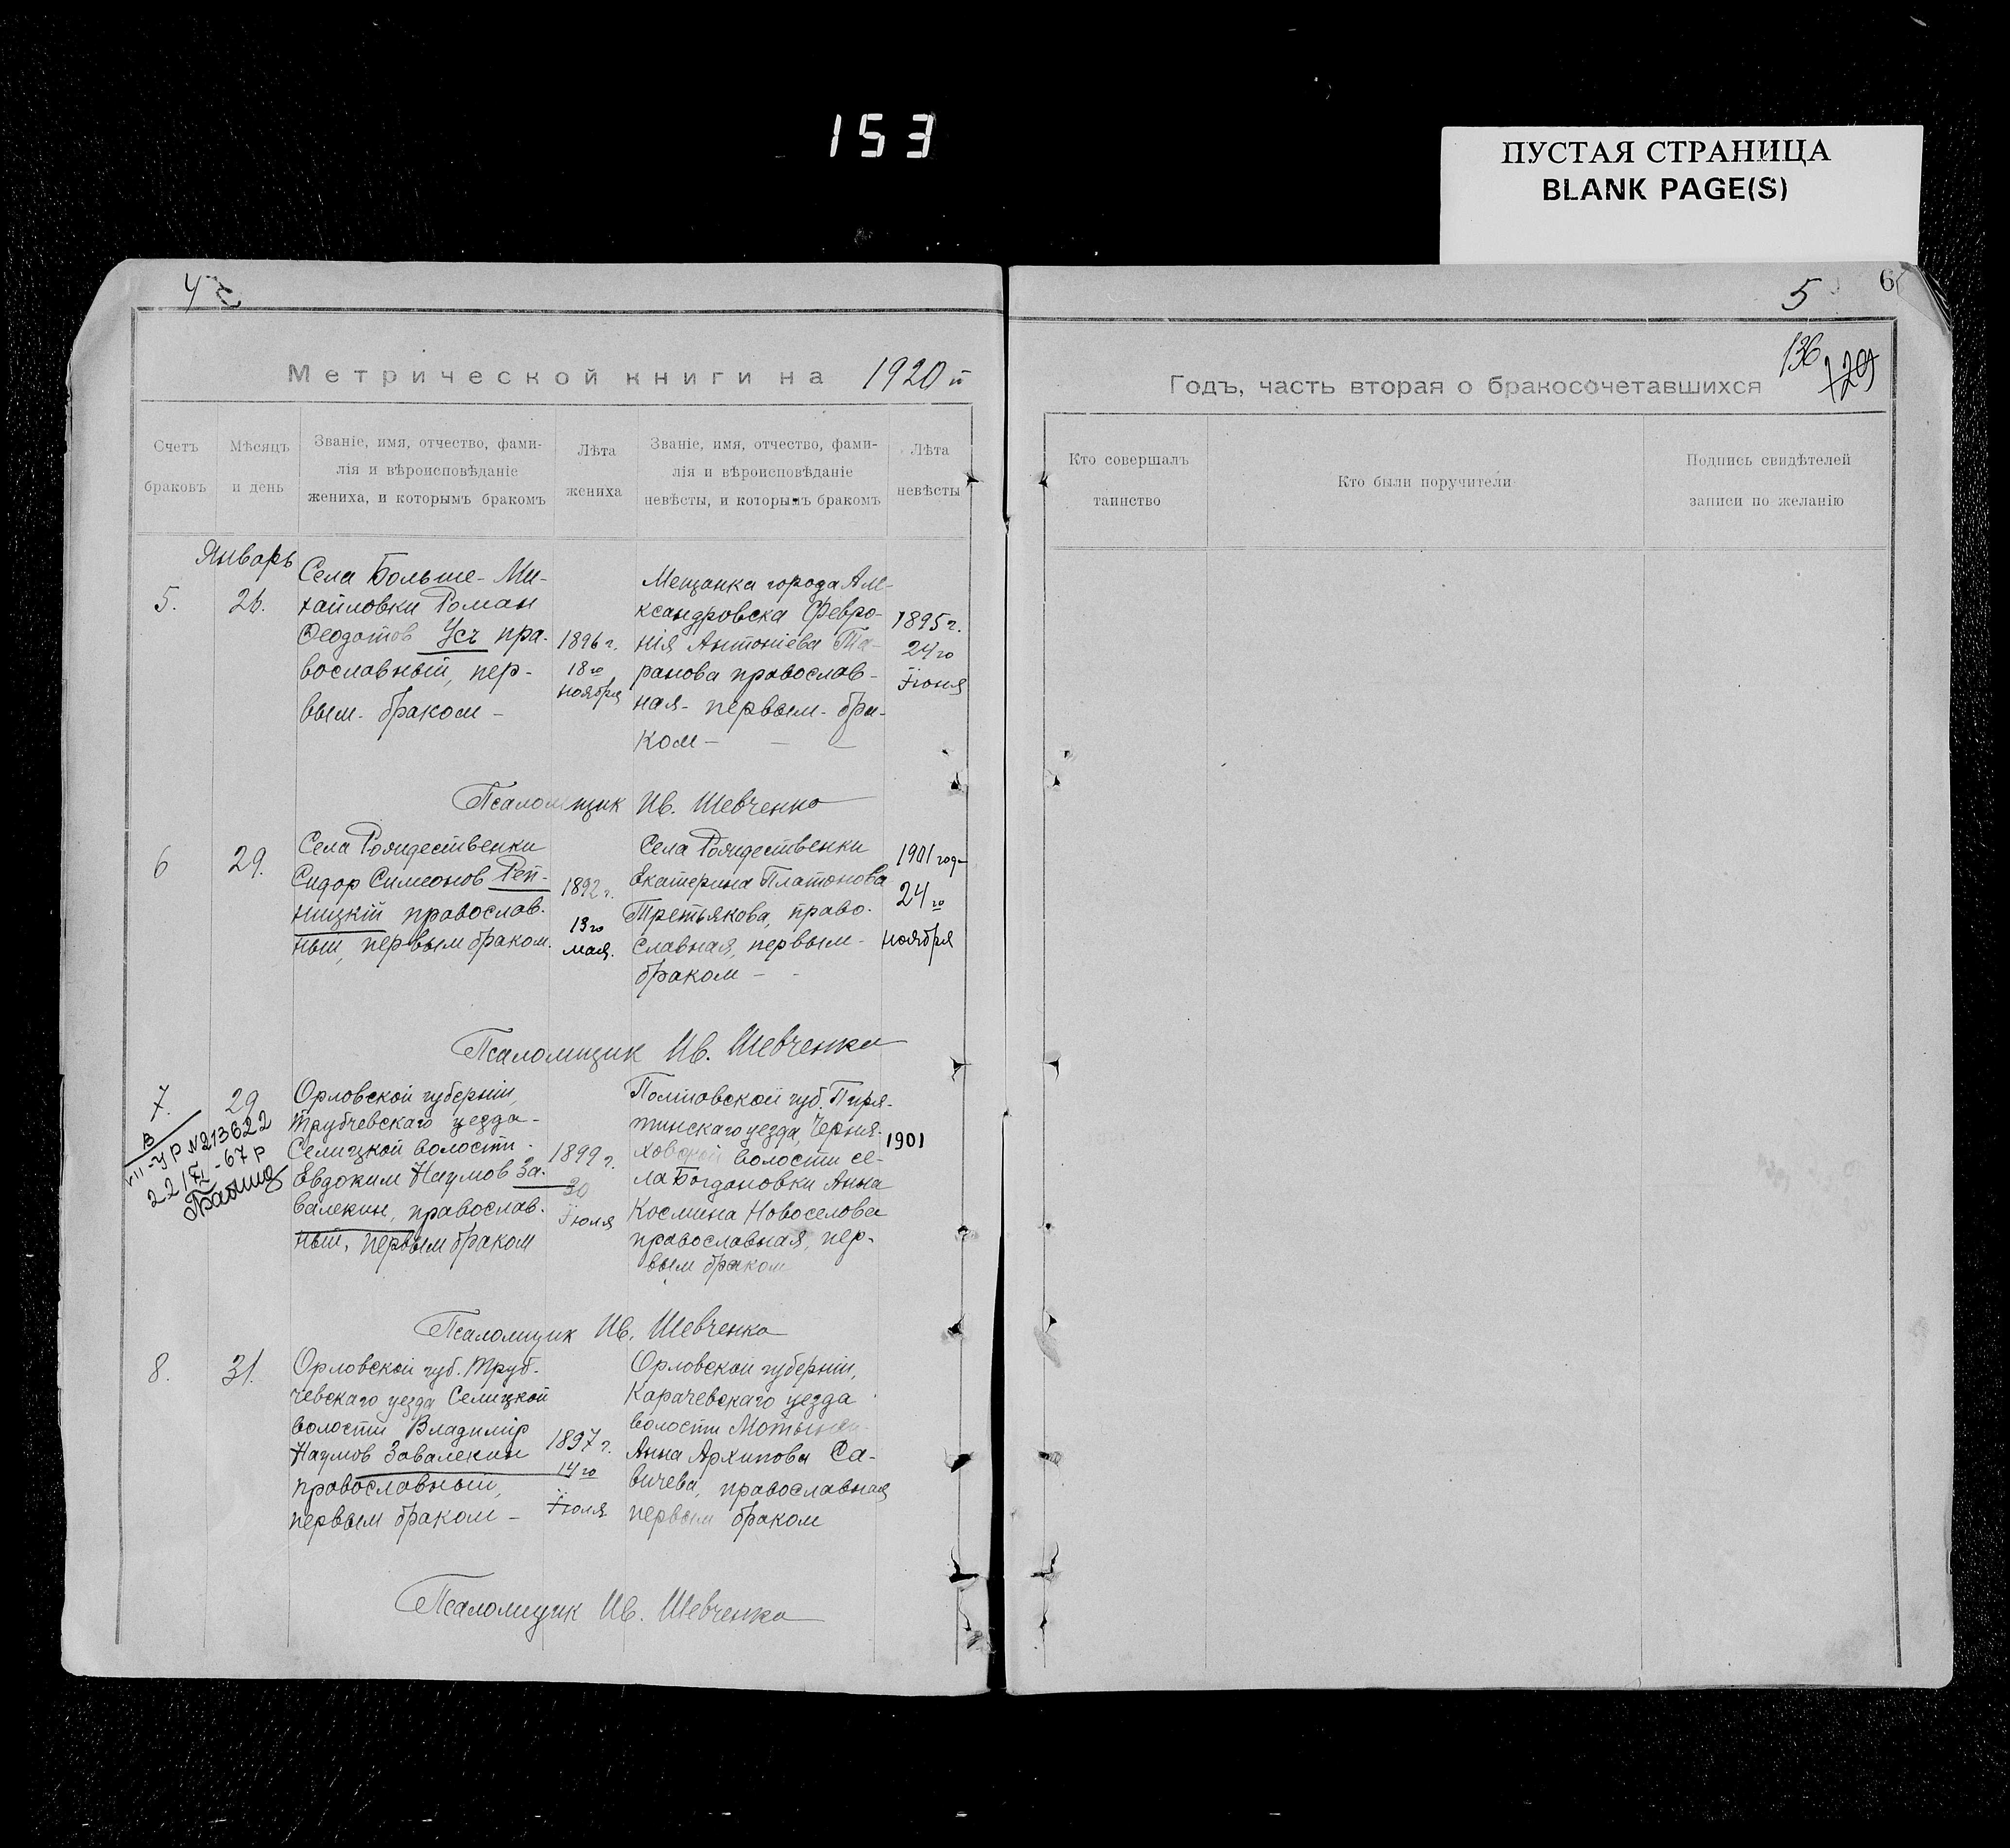 153
ПУСТАЯ СТРАНИЦА
BLANK PAGE(S)
4
5
6
136
129
Метрической книги на 1920 й
Годъ, часть вторая о бракосочетавшихся
Счетъ браковъ
Мѣсяцъ и день
Званіе, имя, отчество, фами-
лія и вѣроисповѣданіе
жениха, и которымъ бракомъ
Лѣта жениха
Званіе, имя, отчество, фами-
лія и вѣроисповѣданіе
невѣсты, и которымъ бракомъ
Лѣта невѣсты
Кто совершалъ
таинство
Кто были поручители
Подпись свидѣтелей
записи по желанію
Январь
5.
26.
Села Больше-Ми-
хайловки Роман
Феодотов Усч пра-
вославный, пер-
вым- браком -
1896 г.
18го
ноября
Мещанка города Але-
ксандровска Февро-
нія Антоніева Та-
ранова православ-
ная- первым- бра-
ком -
1895 г.
24го
Іюня
Псаломщик Ив. Шевченко
6
29.
Села Рождественки
Сидор Симеонов Реп-
ницкій православ-
ный, первым браком.
1892 г.
13го
мая.
Села Рождественки
Екатерина Платонова
Третьякова, право-
славная, первым-
браком -
1901 года
24го
ноября
Псаломщик Ив. Шевченко
7.
29
В
VIII-УР №213622
22/IX-67 р
Орловской губерніи,
Трубчевскаго уезда-
Селицкой волости
Евдоким Наумов За-
валекин, православ-
ный, первым браком
1899 г.
30
Іюля
Полтавской губ. Пиря-
тинскаго уезда, Черня-
ховской волости се-
ла Богдановки Анна
Косьмина Новоселова
православная, пер-
вым браком
1901
Псаломщик Ив. Шевченко
8.
31.
Орловской губ. Труб-
чевскаго уезда Селицкой
волости Владимір
Наумов Завалекин
православный,
первым браком -
1897 г.
14го
Іюля
Орловской губерніи,
Карачевскаго уезда
волости
Анна Архипова Са-
вичева, православная
первым браком
Псаломщик Ив. Шевченко